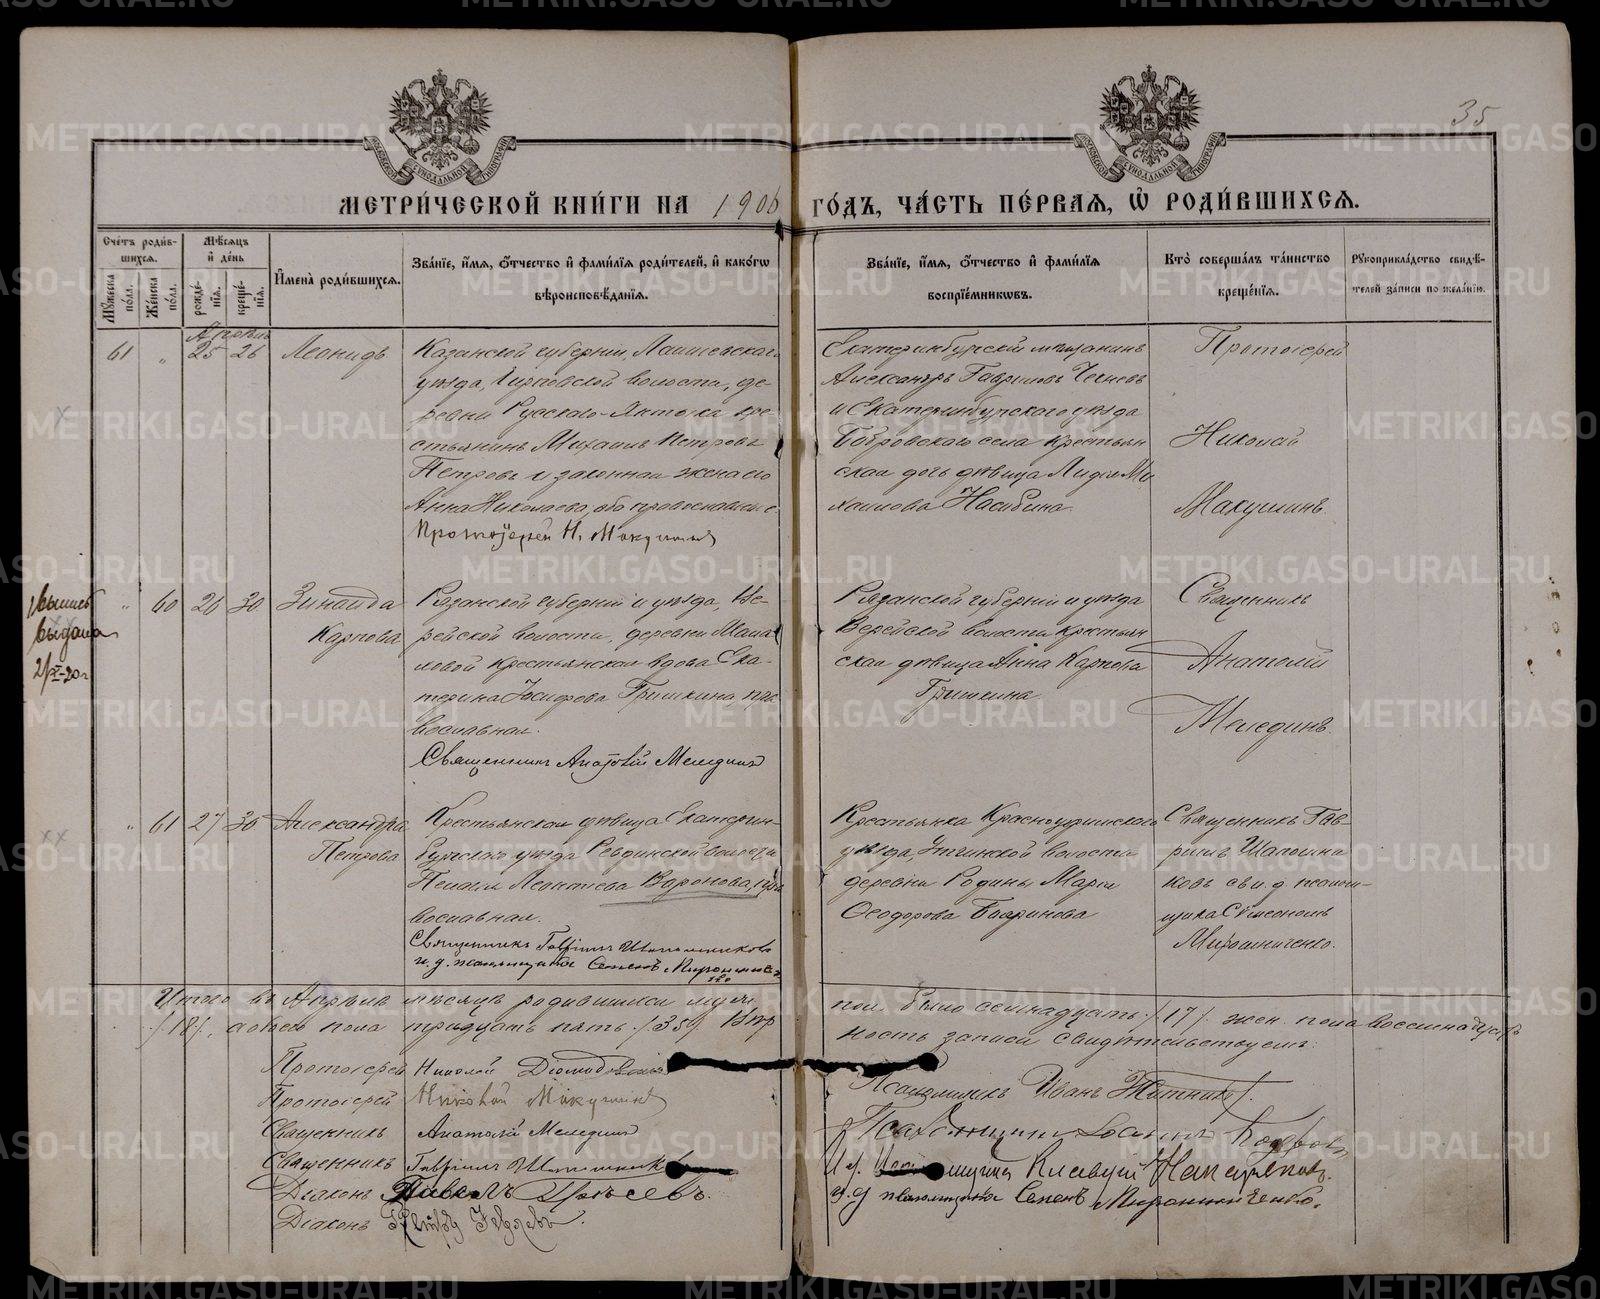 35
МЕТРИ́ЧЕСКОЙ КНИ́ГИ НА 1906 ГО́ДЪ, ЧА́СТЬ ПЕ́РВАѦ, Ѽ РОДИ́ВШИХСѦ.
Сче́тъ роди́в-
шихсѧ.
Мꙋ́жеска по́ла.
Же́нска по́ла.
Мѣ́сѧцъ и҆ де́нь
рожде́нїѧ.
креще́нїѧ.
И҆мена̀ роди́вшихсѧ.
Зва́нїе, и҆́мѧ, ѻ҆́тчество и҆ фами́лїѧ роди́телей, и҆ како́гѡ
вѣроисповѣ́данїѧ.
Зва́нїе, и҆́мѧ, ѻ҆́тчество и҆ фами́лїѧ
воспрїе́мникѡвъ.
Кто̀ соверша́лъ та́инство
креще́нїѧ.
Рꙋкоприкла́дство свидѣ́-
телей за́писи по жела́нїю.
Апрѣль
61 „ 25 26 Леонидъ
Казанской губерніи, Лаишевскаго
уѣзда, волости, де-
ревни Русскаго- кре-
стьянинъ Михаилъ Петровъ
Петровъ и законная жена его
Анна Николаева, оба православные.
Протоіерей Н. Макушинъ
Екатеринбургскій мѣщанинъ
Александръ Гавриловъ
и Екатеринбургскаго уѣзда
Бобровскаго села крестьян
ская дочь дѣвица Лидія Ми
хаилова
Протоіерей
Николай
Макушинъ
выпись
выдана
„ 60 26 30 Зинаида
Карпова
Рязанской губерніи и уѣзда, Ве-
рейской волости, деревни
крестьянская вдова Ека-
терина Іосифова Гришкина, пра
вославная.
Священникъ Анатолій Мелединъ
Рязанской губерніи и уѣзда
Верейской волости крестьян
ская дѣвица Анна Карпова
Гришкина
Священникъ
Анатолій
Мелединъ
„ 61 27 30 Александра
Петрова
Крестьянская дѣвица Екатерин-
бургскаго уѣзда Ревдинской волости
Пелагія Леонтьева Воронова, пра
вославная.
Священникъ Гавріилъ Шапошниковъ
и. д. псаломщика Семенъ Мирошничен
ко
Крестьянка Красноуфимскаго
уѣзда, Уткинской волости
деревни Родины Марія
Ѳеодорова
Священникъ Гав-
ріилъ Шапошни
ковъ съ и. д. псалом-
щика Симеономъ
Мирошниченко.
Итого въ Апрѣлѣ мѣсяцѣ родившихся муж.
пол. было семнадцать /17/. жен. пола восемнадцать
/18/, а обоего пола тридцать пять /35/. Вѣр
ность записи свидѣтельствуемъ:
Протоіерей Николай Діомидовскій
Протоіерей Николай Макушинъ
Священникъ Анатолій Мелединъ
Священникъ Гавріилъ Шапошниковъ
Діаконъ Павелъ
Діаконъ
Псаломщикъ Иванъ Житниковъ.
Псаломщикъ
И. д. Псаломщика
и. д. псаломщика Семенъ Мирошниченко.
METRIKI.GASO-URAL.RU